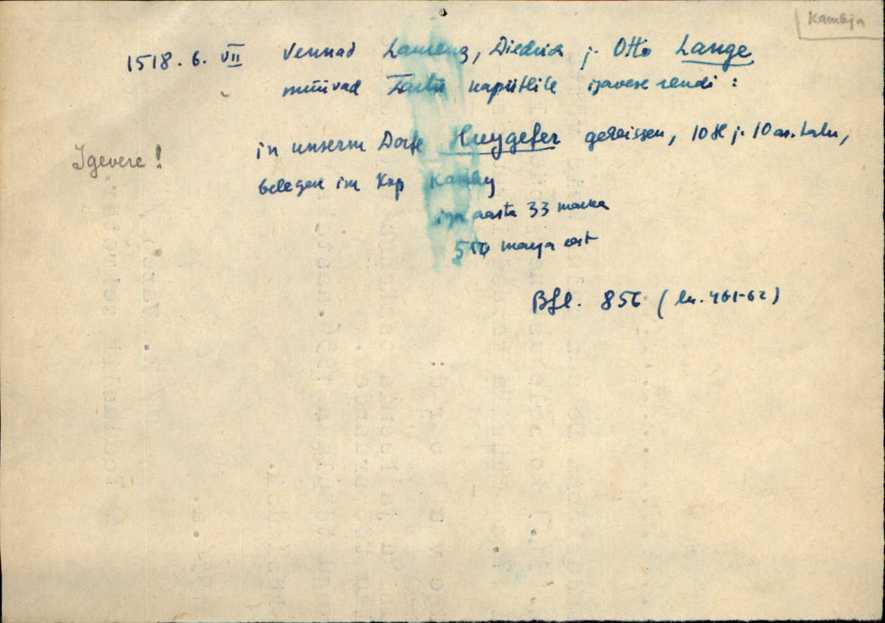 Kambja
1518. 6. VII Vennad Laurenz, Diedrich j. Otto Lange
müüvad Tartu kapiitlile igavese rendi :
Igevere !
in unserm Dorfe Huygefer geheissen, 10 H j. 10 a. talu,
belegen im Ksp Kamby
iga aasta 33 marka
550 marga eest
BfL. 856 ( lk. 461-62 )